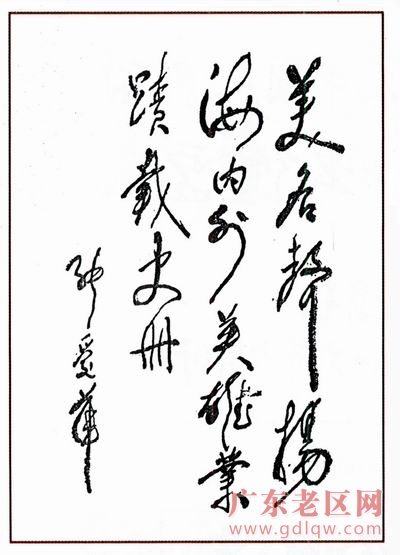 美名声扬
海内外英雄业
蹟载史册
张爱萍
广东老区网
www.gdlqw.com